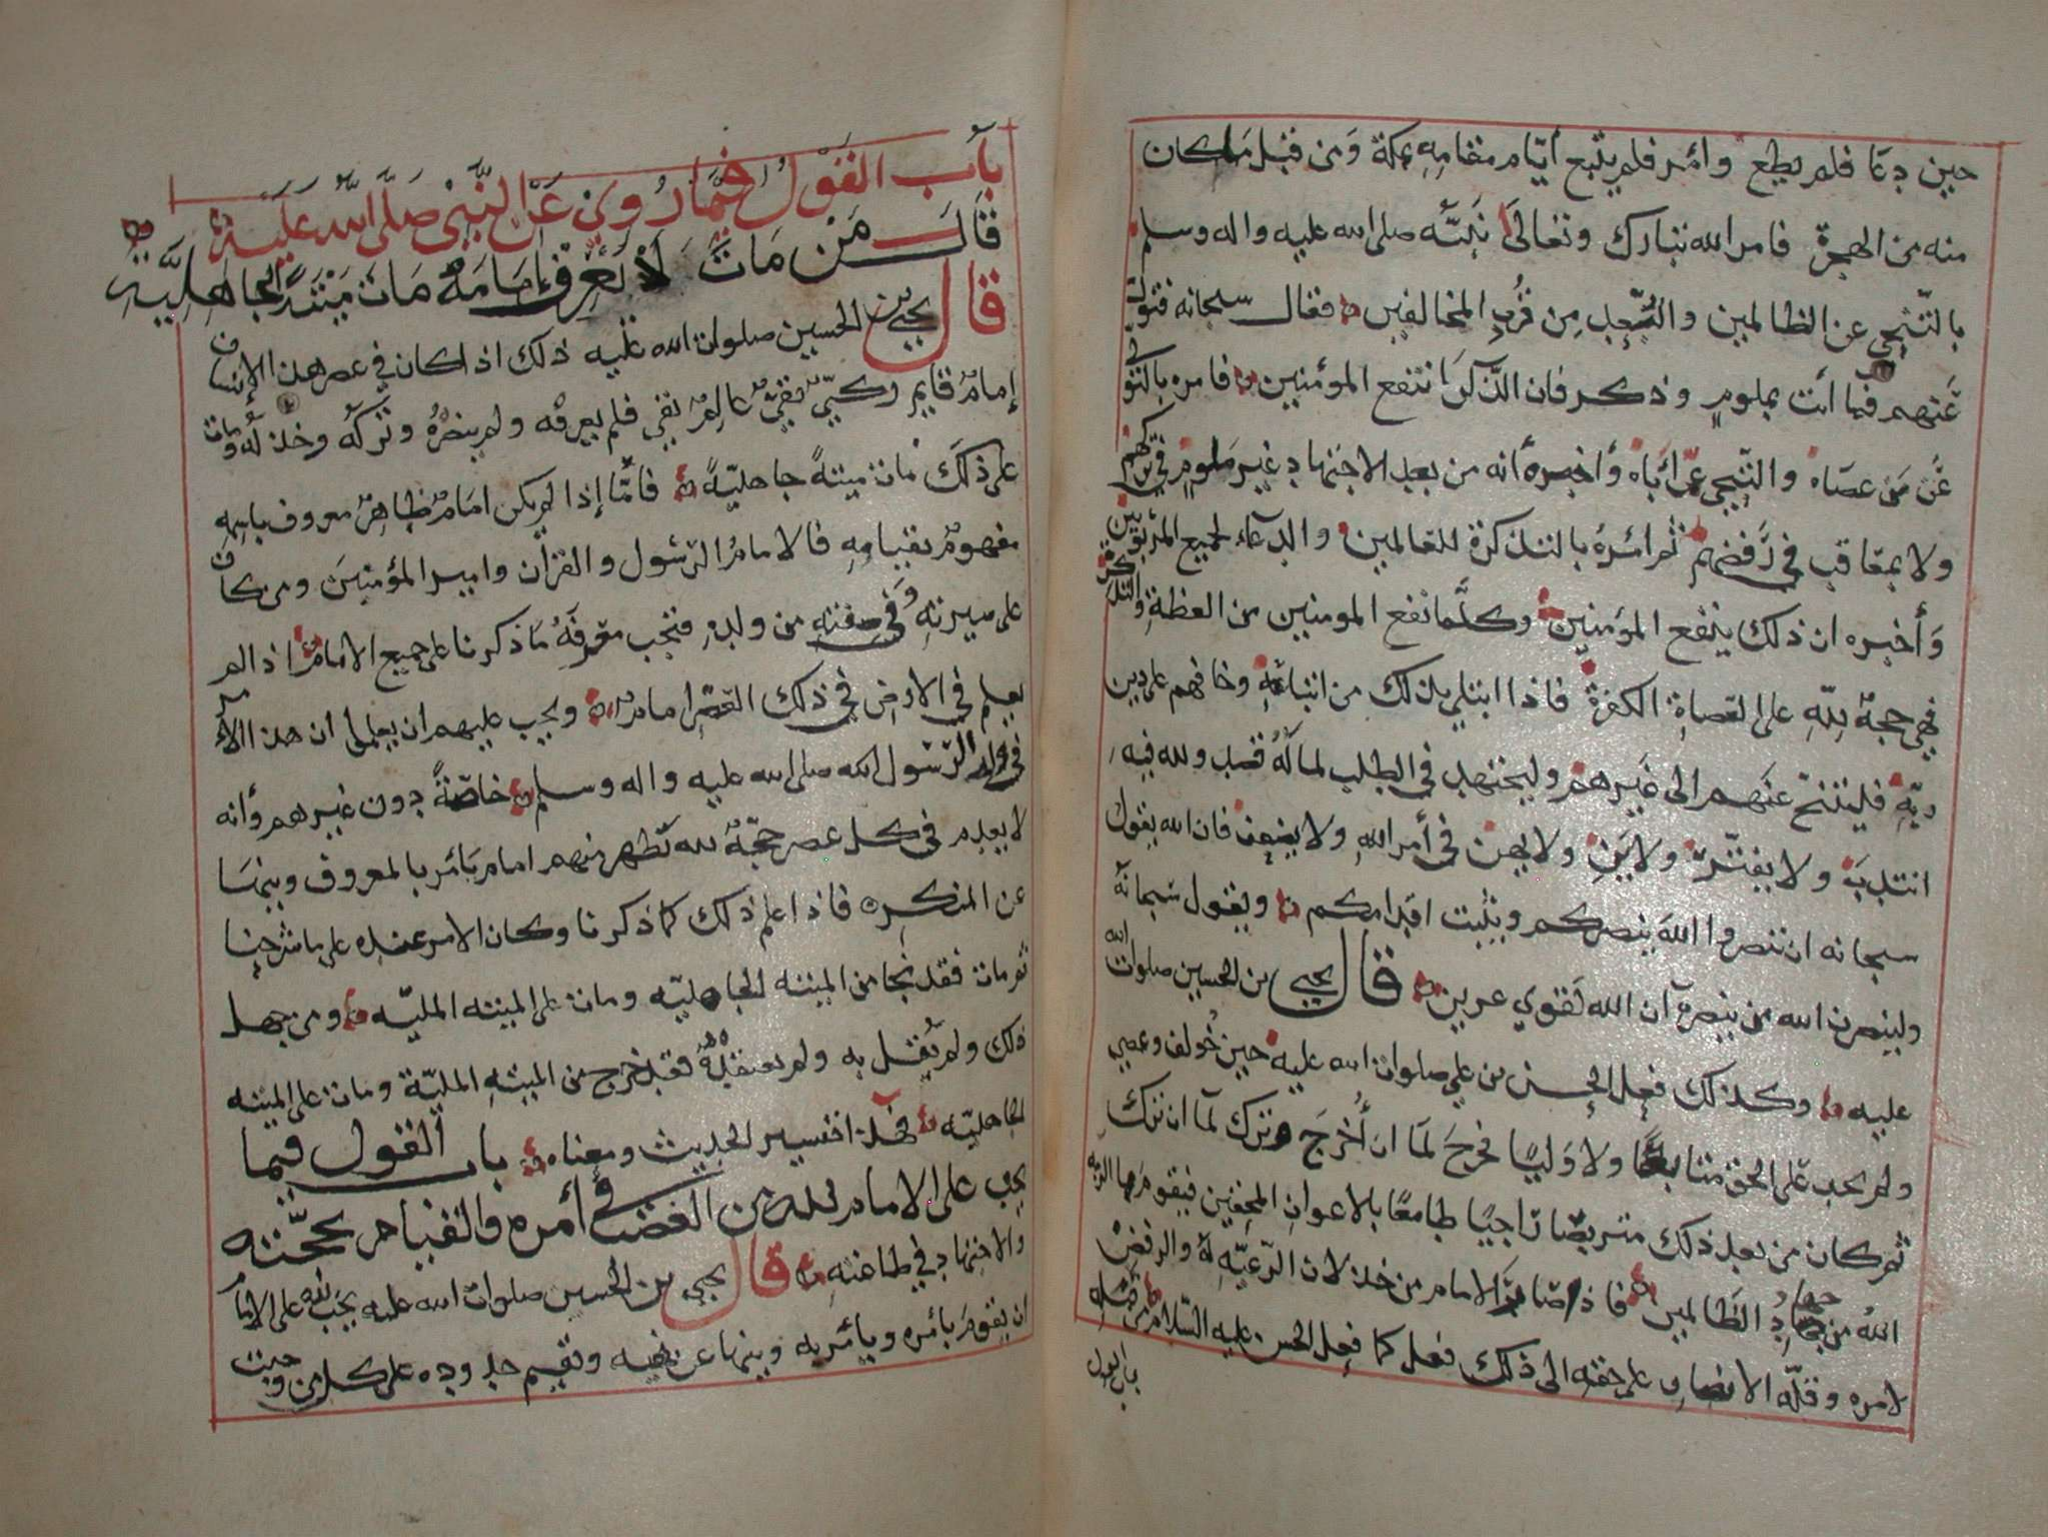 حين دعا فلم يطع وامر فلم يتبع ايام مقامه بمكة ومن قبل ما كان
منه من الهجرة فامر الله تبارك وتعالى نبيّه صلى الله عليه واله وسلم
بالتنحي عن الظالمين والبعد من قرب المخالفين فقال سبحانه فتول
عنهم فما أنت بملوم وذكر فان الذكرى تنفع المؤمنين فامره بالتولي
عن من عصاه والتنحي عن أباه وأخبره أنه من بعد الاجتهاد غير ملوم في تركهم
ولا معاقب في رفضهم ثم امره بالتذكرة للعالمين والدعاء لجميع المربوبين
وأخبره ان ذلك ينفع المؤمنين وكلما نفع المومنين من العظة والتذكرة
فهي حجة لله على العصاة الكفرة فاذا ابتلي بذلك من اتباعه وخافهم على دين
ربه فليتنح عنهم الى غيرهم وليجتهد في الطلب لما له قصد ولله فيه
انتدب ولا يفتر ولا ين ولا يهن في أمر الله ولا يضعف فان الله يقول
سبحانه ان تنصروا الله ينصركم ويثبت اقدامكم ويقول سبحانه
ولينصرن الله من ينصره ان الله لقوي عزيز قال يحيى بن الحسين صلوات الله
عليه وكذلك فعل الحسن بن علي صلوات الله عليه حين خولف وعصي
ولم يجد على الحق متابعا ولا وليا فخرج لما ان أخرج وترك لما ان ترك
ثم كان من بعد ذلك متربصا راجيا طامعا بالاعوان المحقين فيقوم بما امره
الله من جهاد الظالمين فاذا صار الامام من خذلان الرعية له والرفض
لامره وقلة الانصار على حقه الى ذلك فعل كما فعل الحسن عليه السلام من قبله
باب القول
باب القول فيما روي عن النبي صلى الله عليه
قال من مات لا يعرف امامه مات ميتة الجاهلية
قال يحيى بن الحسين صلوات الله عليه ذلك اذا كان في عصر هذا الإنسان
إمام قايم زكي تقي عالم نقي فلم يعرفه ولم ينصره وتركه وخذله ومات
على ذلك مات ميتة جاهلية فأما إذا لم يكن امام ظاهر معروف باسمه
مفهوم بقيامه فالامام الرسول والقران وامير المؤمنين ومن كان
على سيرته وفي صفته من ولده فتجب معرفة ما ذكرنا على جميع الانام اذا لم
يعلم في الارض في ذلك العصر امام ويجب عليهم ان يعلموا ان هذا الأمر
في ولد الرسول صلى الله عليه واله وسلم خاصة دون غيرهم وأنه
لا يعدم في كل عصر حجة لله تظهر منهم امام يأمر بالمعروف وينها
عن المنكر فاذا علم ذلك كما ذكرنا وكان الامر عنده على ما شرحنا
ثم مات فقد نجا من الميتة الجاهلية ومات على الميتة المليه ومن جهل
ذلك ولم يقل به ولم يعتقده فقد خرج من الميتة الملية ومات على الميتة
الجاهلية فهذا تفسير الحديث ومعناه باب القول فيما
يجب على الامام لله من الغضب في أمره والقيام بحجته
والاجتهاد في طاعته قال يحيى بن الحسين صلوات الله عليه يجب لله على الامام
ان يقوم بأمره ويأمر به وينها عن نهيه وتقيم حدوده على كل من وجبت